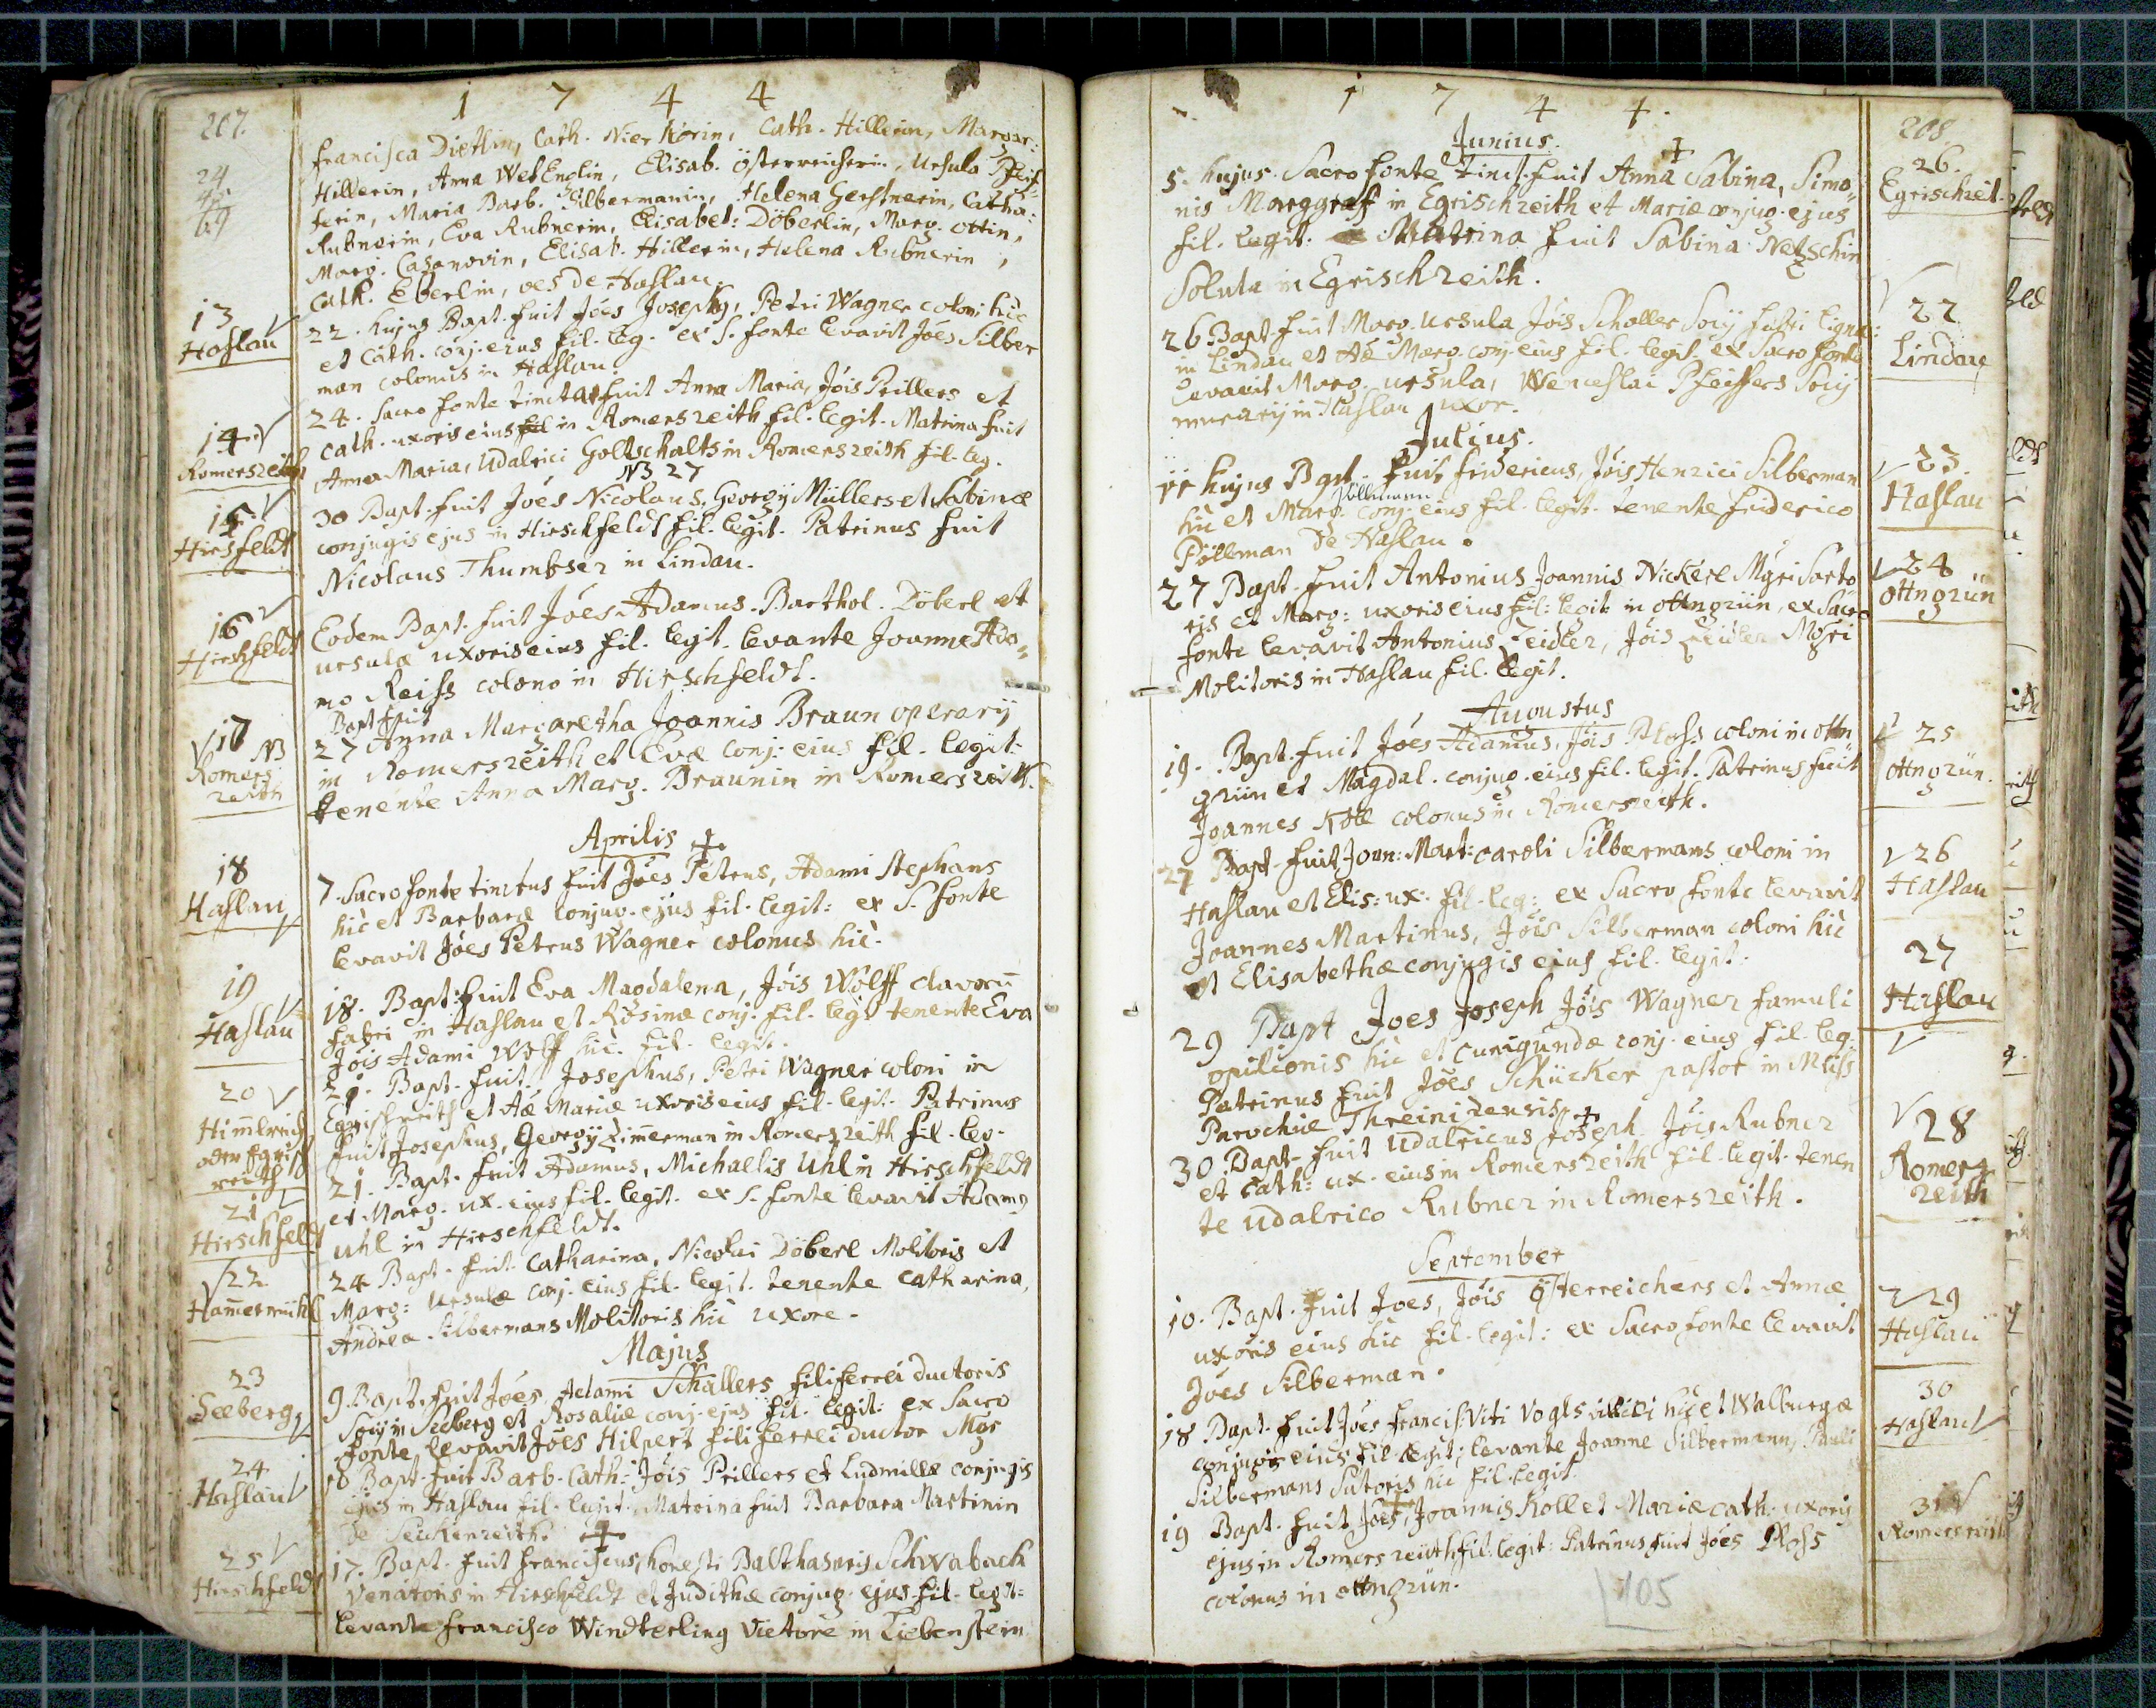 207.
1 7 4 4
Francisca Dietlin, Cath. Nierkorin, Cath. Hillerin, Margar:
24
Hillerin, Anna Wetzenglin, Elisab. Österreicherin, Ursula Pfeif
45
ferin, Maria Barb. Silbermanin, Helena Gerstnerin, Catha:
69
Rubnerin, Eva Rubnerin, Elisabet: Döberlin, Marg. Ottin,
Marg. Casanovin, Elisab. Hillerin, Helena Rubnerin,
Cath. Eberlin, oes de Haslau.
13
Haslau
22. hujus Bapt. fuit Jóes Josephg, Petri Wagner coloni hic
et Cath. conj. eius fil. leg. ex S. fonte levavit Joes Silber
man colonus in Haslau.
14.
Romerszeith
24. Sacro fonte tincta fuit Anna Maria, Jóis Prillers et
Cath. uxoris eius in Romerszeith fil. legit. Matrina fuit
Anna Maria, Udalrici Gottschalts in Romerszeith fil. leg.
NB 27
15.
Hirsfeldt
30 Bapt. fuit Jóes Nicolaus, Georgÿ Müllers et Sabinæ
conjugis ejus in Hirschfeldt fil. legit. Patrinus fuit
Nicolaus Thumbser in Lindau.
16
Hirshfeldt
Eodem Bapt. fuit Jóes Adamus. Barthol. Döberl et
Ursulæ uxoris eius fil. legit. levante Joanne Ada„
mo Reiss colono in Hirschfeldt.
17 NB
Romers
zeith
Bapt fuit
27 Anna Margaretha Joannis Braun operarÿ
in Romerszeith et Evæ conj: eius fil. legit:
tenente Anna Marg. Braunin in Romerszeith.
Aprilis
18
Haslau
7. Sacro fonte tinctus fuit Jóes Petrus, Adami Stephans
hic et Barbaræ conjug. ejus fil. legit: ex S. fonte
levavit Jóes Petrus Wagner colonus hic.
19
Haslau
18. Bapt: fuit Eva Magdalena, Jóis Wolff clavorū
fabri in Haslau et Rosinæ conj. fil. legt tenente Eva
Jóis Adami Wolff hic. fil. legit.
20
Him̄lreich
oder Egris
reith
Bapt. fuit Josephus, Petri Wagner coloni in
Egrischreith et Aæ Mariæ uxoris eius fil. legit. Patrinus
fuit Josephus, Georgÿ Zim̄erman in Romerszeith fil. leg.
21
Hirschfeldt
21. Bapt. fuit Adamus, Michaelis Uhl in Hirschfeldt
et Marg: ux. eius fil. legit. ex S. fonte levavit Adamg
Uhl in Hirschfeldt.
22
Ham̄ermühl
24 Bapt. fuit Catharina, Nicolai Döberl Molitoris et
Marg: Ursulæ conj. eius fil. legit. tenente Catharina,
Andreæ Silbermans Molitoris hic uxore.
Majus
23
Seeberg
9 Bapt. fuit Jóes Adami Schallers filiferrei ductoris
Socÿ in Seeberg et Rosaliæ conj. ejus fil. legit: ex Sacro
fonte levavit Jóes Hilpert filiferrei ductor Mgr
24
Haslau
Bapt. fuit Barb. Cath: Jóis Prillers et Ludmillæ conjugis
ejus in Haslau fil. legit. Matrina fuit Barbara Martinin
de Seickenreith.
25
Hirschfeldt
17. Bapt. fuit Franciscus, honesti Balthasaris Schwabach
Venatoris in Hirschfeldt et Judithæ conjug. ejus fil. legit:
levante Francisco Windterling Vietore in Liebenstein
1 7 4 4.
208.
Junius.
26.
Egrischreit.
5. hujus. Sacro fonte tinct. fuit Anna Sabina, Simo„
nis Marggraf in Egrischreith et Mariæ conjug. ejus
fil. legit. Matrina fuit Sabina Netzschin
Soluta in Egrischreith.
22
Lindau
26 Bapt. fuit Marg. Ursula Jóis Schaller Socÿ fabri ligna:
in Lindau et Aæ Marg. conj. eius fil. legit. ex Sacro fonte
levavit Marg. Ursula, Wenceslai Pfeiffers Socÿ
murarÿ in Haslau uxor.
Julius.
23.
Haslau
11 hujus Bapt. fuit Fridericus, Jóis Henrici Silberman
Pöllmann
hic et Marg. conj. eius fil. legit. tenente Friderico
Pöllman de Haslau.
24
Ottngrün
27 Bapt. fuit Antonius Joannis Nickerl Mgri Sarto
ris et Marg: uxoris eius fil: legit in Ottngrün, ex Sacro
fonte levavit Antonius Zeidler, Jóis Zeidler Mgri
Molitoris in Haslau fil. legit.
Augustus
25
Ottngrün.
19. Bapt. fuit Jóes Adamus, Jóis Ploss coloni in Ottn
grün et Magdal. conjug. eius fil. legit. Patrinus fuit
Joannes Köll colonus in Romerszeith.
26
Haslau
27 Bapt. fuit Joan: Mart: Caroli Silbermans coloni in
Haslau et Elis: ux: fil. leg: ex Sacro fonte levavit
Joannes Martinus, Jóis Silberman coloni hic
et Elisabethæ conjugis eius fil. legit:
27
Haslau
29 Bapt Joes Joseph Jóis Wagner famuli
opilionis hic et Cunigundæ conj. eius fil. leg:
Patrinus fuit Jóes Schücker pastor in
Parochiæ
28
Romers
zeith
30 Bapt. fuit Udalricus Joseph. Jóis Rubner
et Cath: ux. eius in Romerszeith fil. legit. tenen
te Udalrico Rubner in Romerszeith.
September
29
Haslau
10. Bapt. fuit Joes, Jóis Österreichers et Annæ
uxoris eius hic fil. legit: ex Sacro fonte levavit
Jóes Silberman.
30
Haslau
18 Bapt. fuit Jóes Francis: Viti Vogls villici hic et Walburgæ
conjugis eius fil. legit; levante Joanne Silbermann, Pauli
Silbermans Sutoris hic fil. legit.
31
Romersreith
19 Bapt. fuit Joes, Joannis Köll et Mariæ Cath: uxoris
ejus in Romerszeith fil. legit: Patrinus fuit Jóes Ploss
colonus in Ottngrün.
105